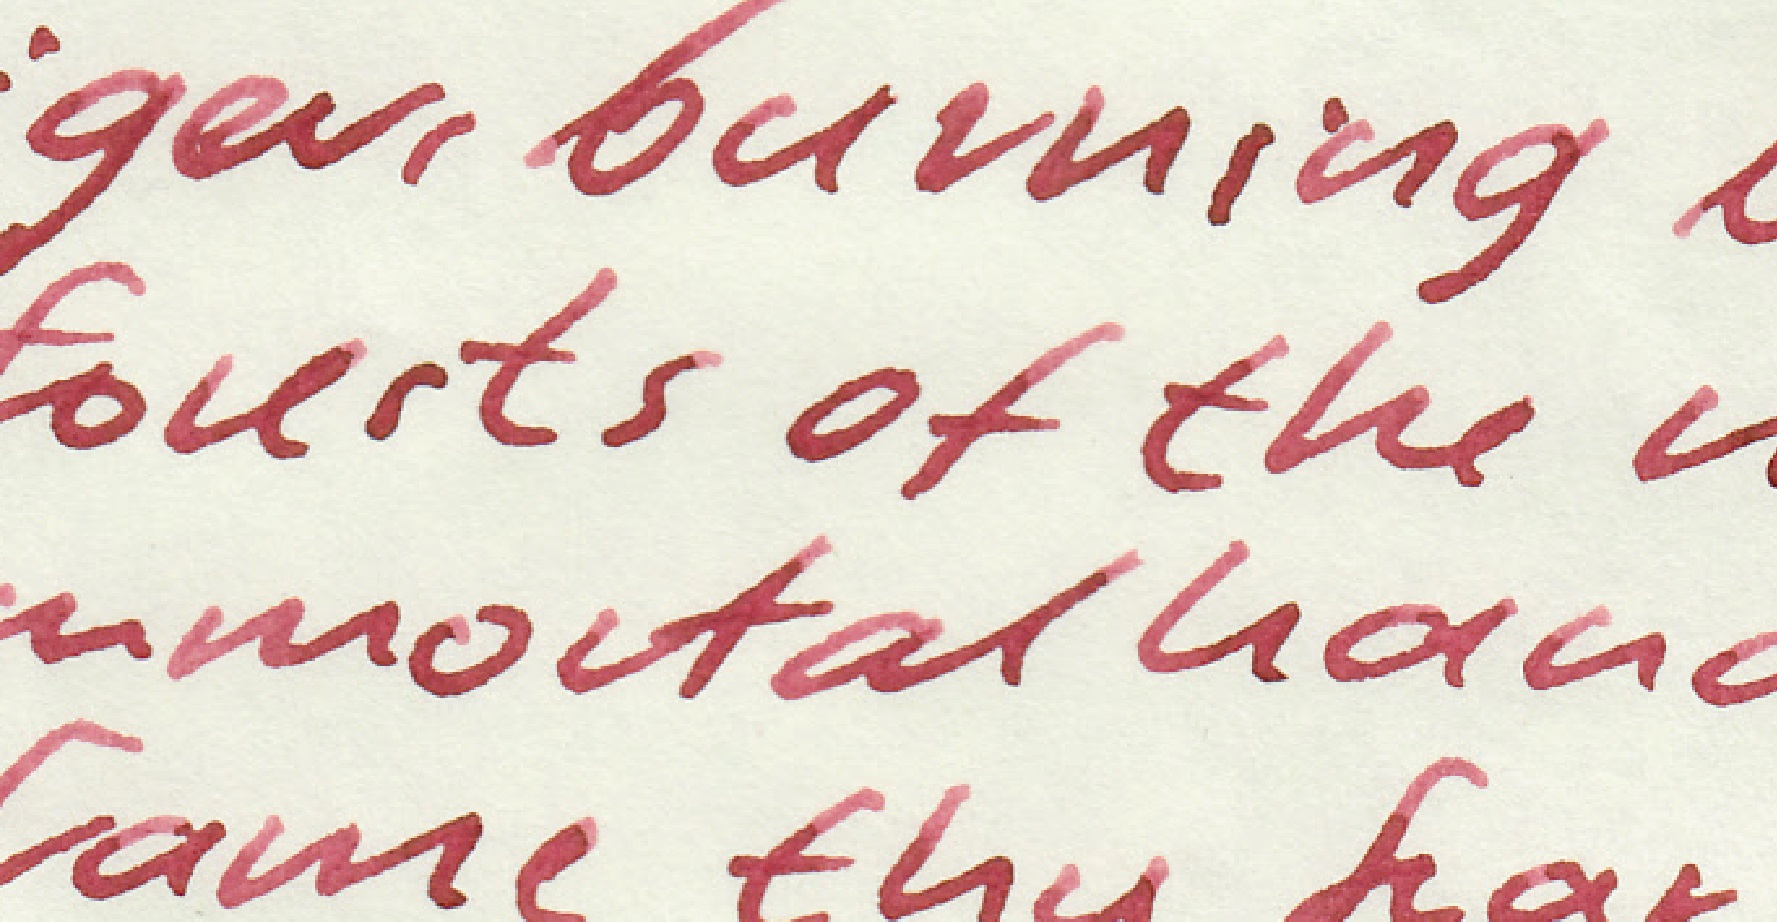 iger, burning b
forests of the n
immortal hand
frame thy fear